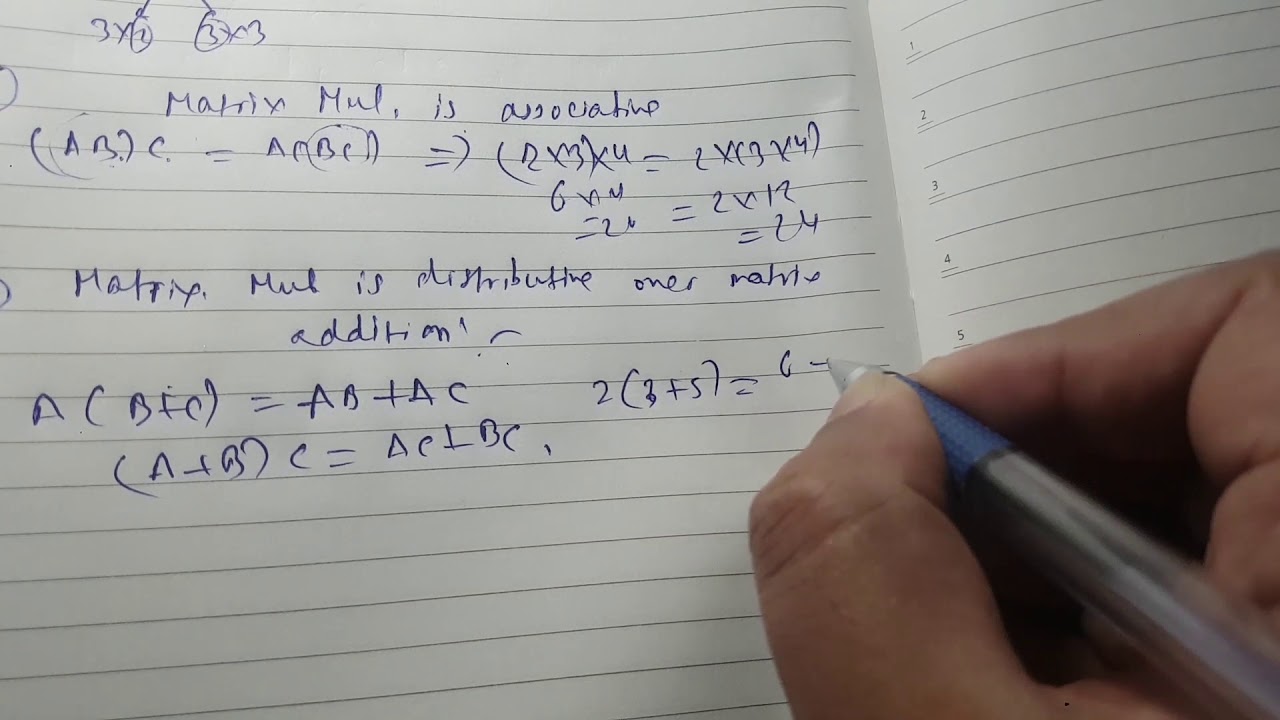 3×2 3×3
Matrix Mul. is associative
(AB)C = A(BC) => (2×3)×4 = 2×(3×4)
6×4 = 2×12
=24 = 24
Matrix. Mul is distributive over matrix
addition
A(B+C) = AB+AC 2(3+5) = 6
(A+B)C = AC+BC.
1
2
3
4
5